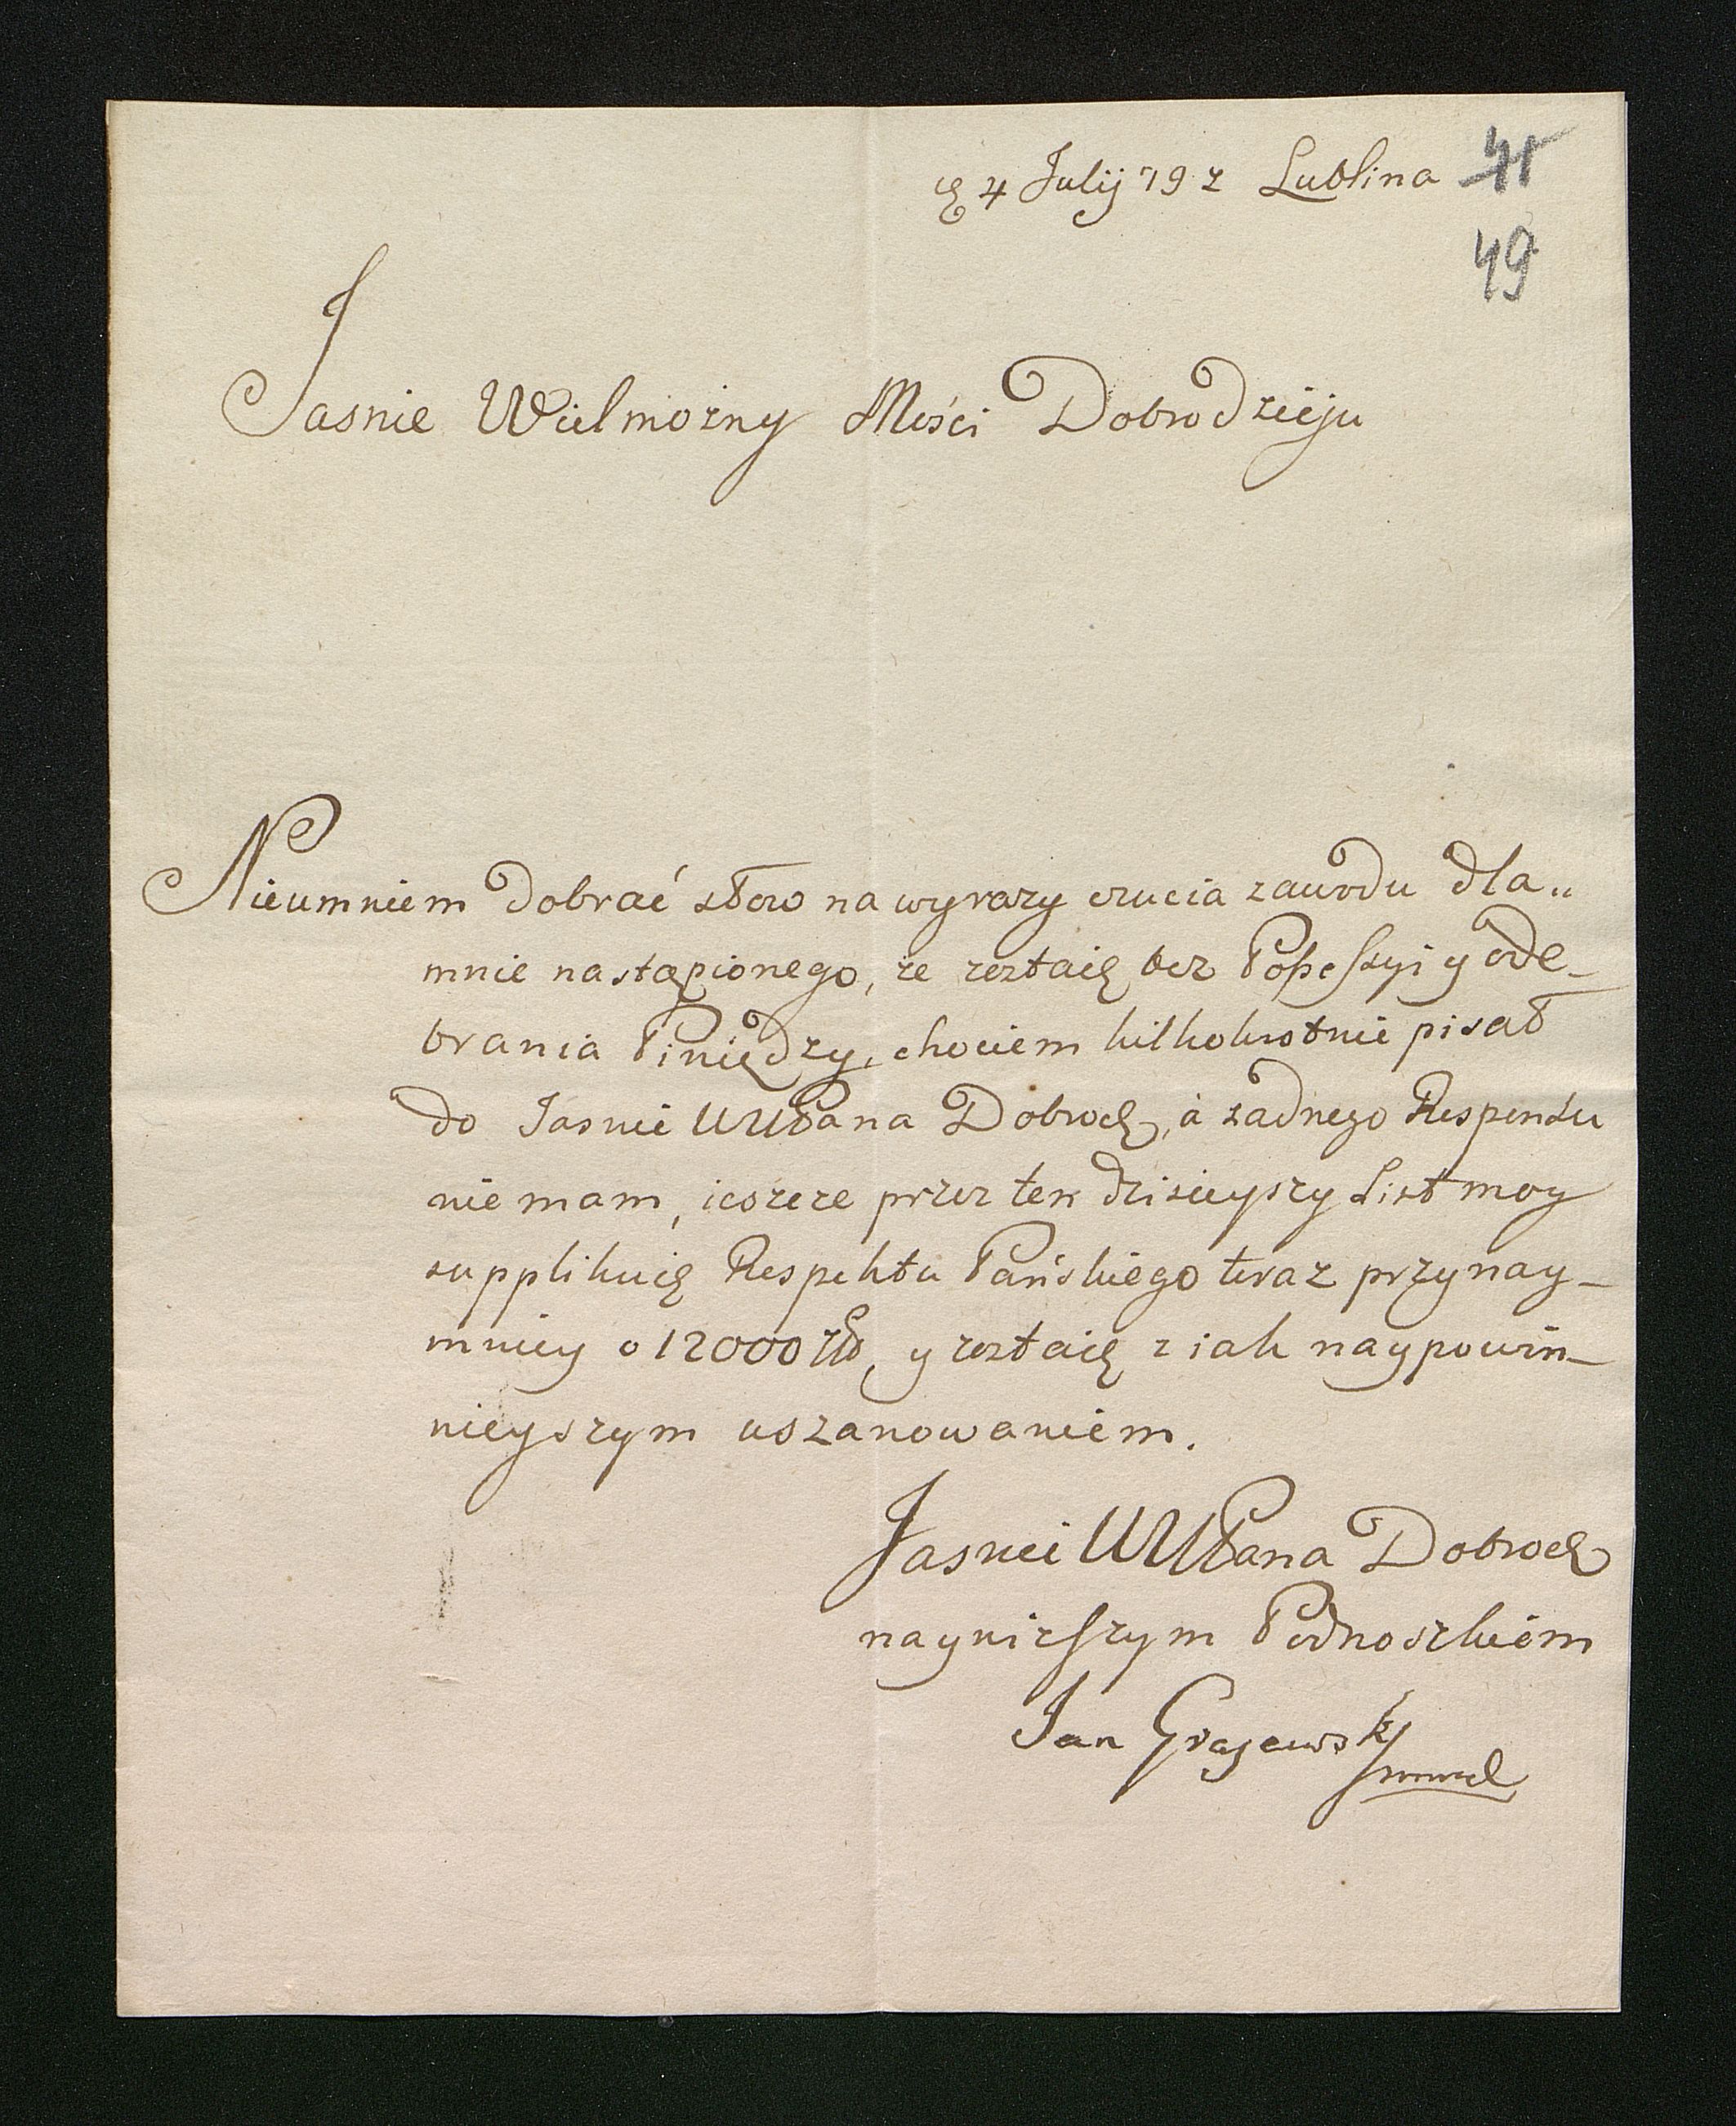 4 Julij 79 z Lublina 41
49
Jasnie Wielmozny Mości Dobrodzieju
Nieumniem Dobrać słow na wyrazy czucia zawodu dla„
mnie nastąpionego, ze zostaię bez Possessyi y ode_
brania Piniędzy, chociem kilkokrotnie pisał
do Jasnie WMPana Dobrodz, á zadnego Responsu
nie mam, ieszcze przez ten dzisieyszy List moy
supplikuię Respektu Pańskiego teraz przynay_
mniey o 12000 zło, y zostaię z iak naypowin_
nieyszym uszanowaniem.
Jasnei WMPana Dobrodz
nayniższym Podnoszkiem
Jan Grajewski